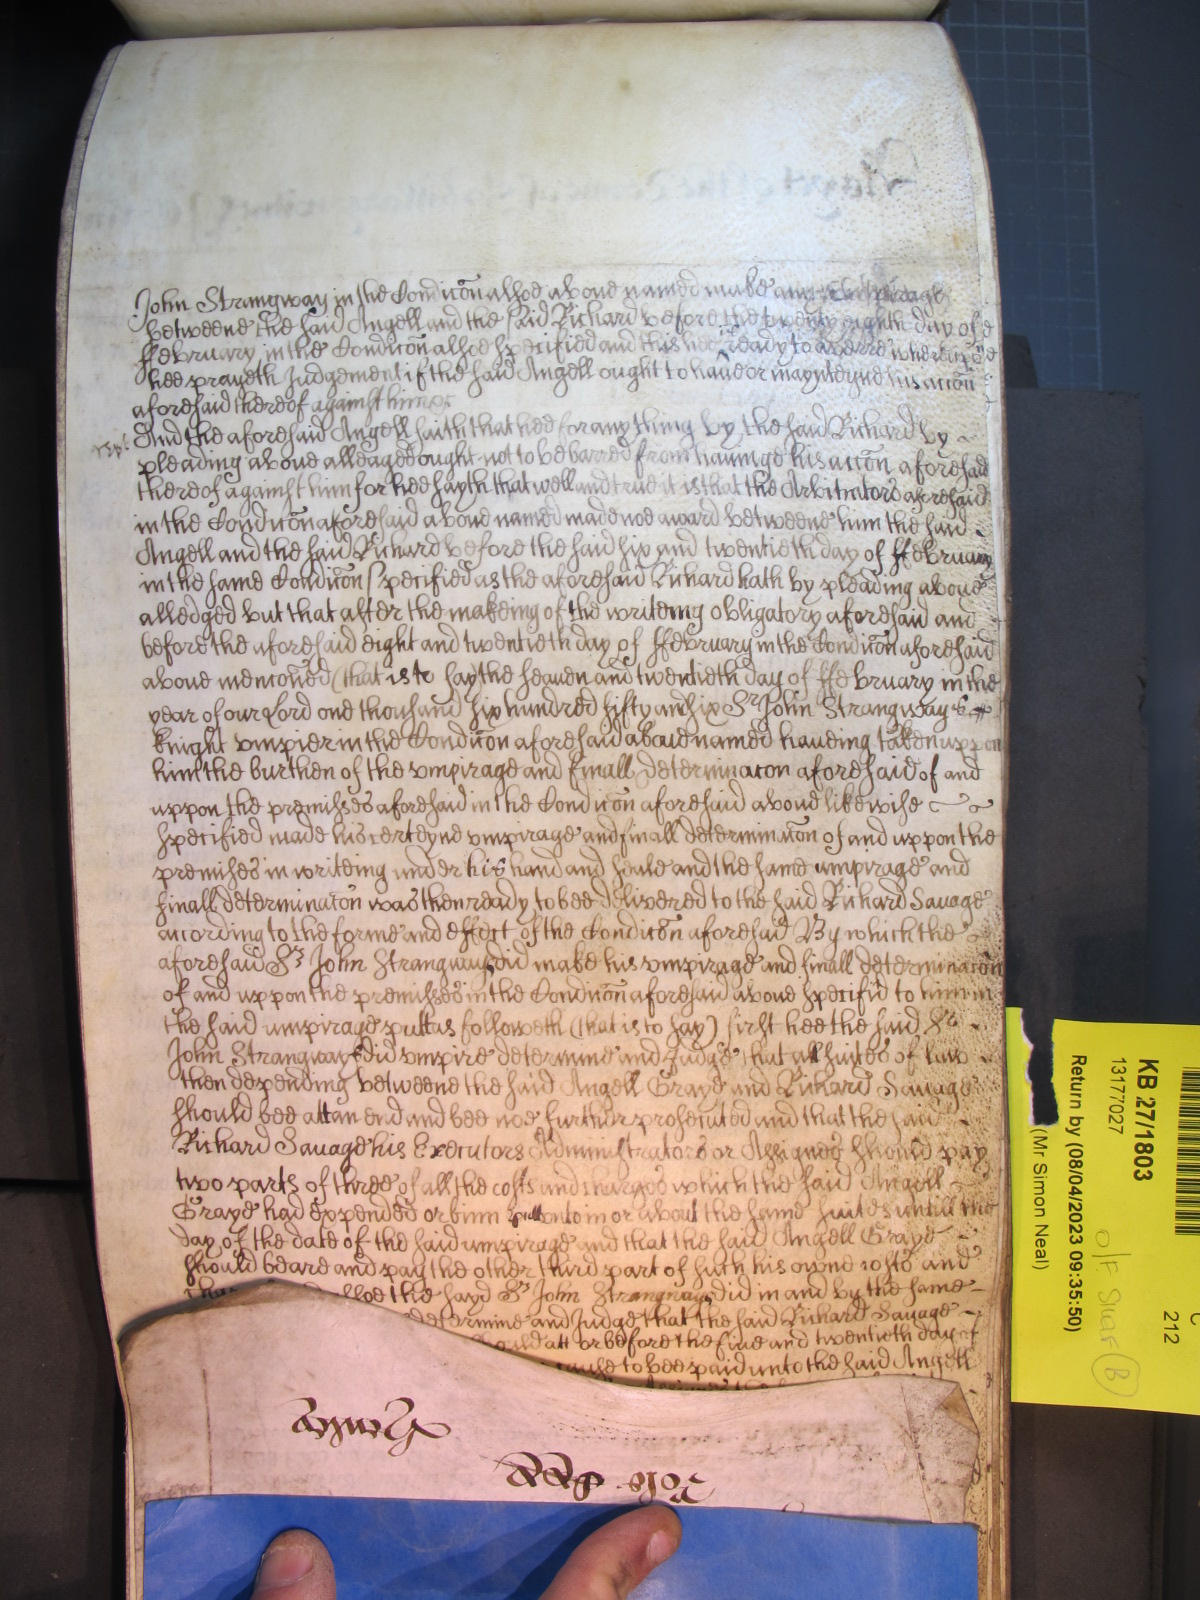 John Strangway in the Condicōn alsoe aboue named make any Umpirage
betweene the said Angell and the said Richard before the twenty eighth day of
ffebruary in the Condicōn alsoe specified and this hee is ready to averre whereupon
hee prayeth Judgement if the said Angell ought to haue or maynteyne his accōn
aforesaid thereof against him &c
And the aforesaid Angell saith that hee for any thing by the said Richard by
pleading aboue alleaged ought not to be barred from haueinge his accōn aforesaid
thereof against him for hee sayth that well and true it is that the Arbitrators aforesaid
in the Condicōn aforesaid aboue named made noe award betweene him the said
Angell and the said Richard before the said six and twentieth day of ffebruary
in the same Condicōn specified as the aforesaid Richard hath by pleading aboue
alledged but that after the makeing of the writeing obligatory aforesaid and
before the aforesaid eight and twentieth day of ffebruary in the Condicōn aforesaid
aboue menconed (that is to say the seauen and twentieth day of ffebruary in the
year of our Lord one thousand six hundred fifty and six Sr John Strangwayes
knight vmpier in the Condicōn aforesaid aboue named haueing taken uppon
him the burthen of the vmpirage and finall determinacon aforesaid of and
uppon the premisses aforesaid in the Condicōn aforesaid aboue likewise
specified made his certeyne vmpirage and finall determinacōn of and uppon the
premises in writeing under his hand and seale and the same umpirage and
finall determinacōn was then ready to bee delivered to the said Richard Sauage
according to the forme and effect of the Condicōn aforesaid By which the
aforesaid Sr John Strangways did make his vmpirage and finall determinacōn
of and uppon the premisses in the Condicōn aforesaid aboue specifid to him in
the said umpirage putt as followeth (that is to say) first hee the said Sr
John Strangwayes did vmpire determine and Judge that all suites of law
then depending betweene the said Angell Graye and Richard Sauage
should bee att an end and bee noe further prosecuted and that the said
Richard Sauage his Executors Administrators or Assignes should pay
two parts of three of all the costs and charges which the said Angell
Graye had expended or binn putt vnto in or about the same suites untill the
day of the date of the said umpirage and that the said Angell Graye
should beare and pay the other third part of such his owne costs and
alsoe the sayd Sr John Strangways did in and by the same
determine and Judge that the said Richard Sauage
should att or before the fiue and twentieth day of
cause to bee paid unto the said Angell
KB 27/1803
13177027
Return by (08/04/2023 09:35:50)
(Mr Simon Neal)
212
B